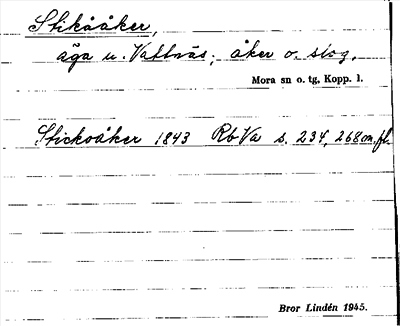 Stikååker,
äga u. Vattnäs; åker o. slog.
Mora sn o. tg, Kopp. l.
Stickoåker 1843 RbVa s. 234, 268 m.fl.
Bror Lindén 1945.